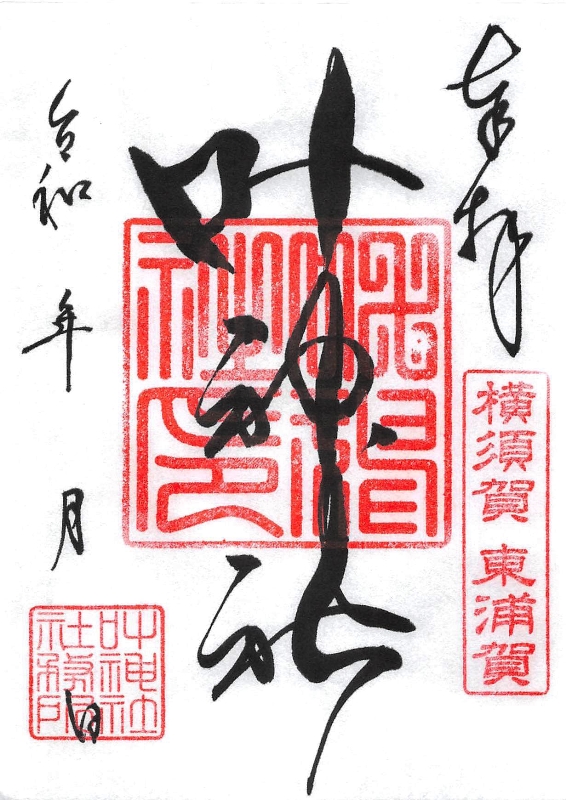 奉拝
横須賀 東浦賀
叶神社
令和 年 月 日
叶神社
社務所